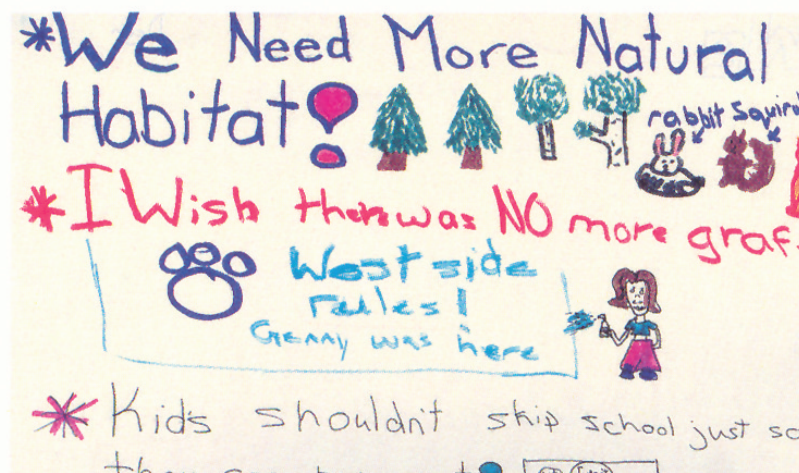 *We Need More Natural
Habitat!
rabbit Squir
*I Wish there was NO more graf
West side
rules!
Genny was here
*Kids shouldn't skip school just so
they can